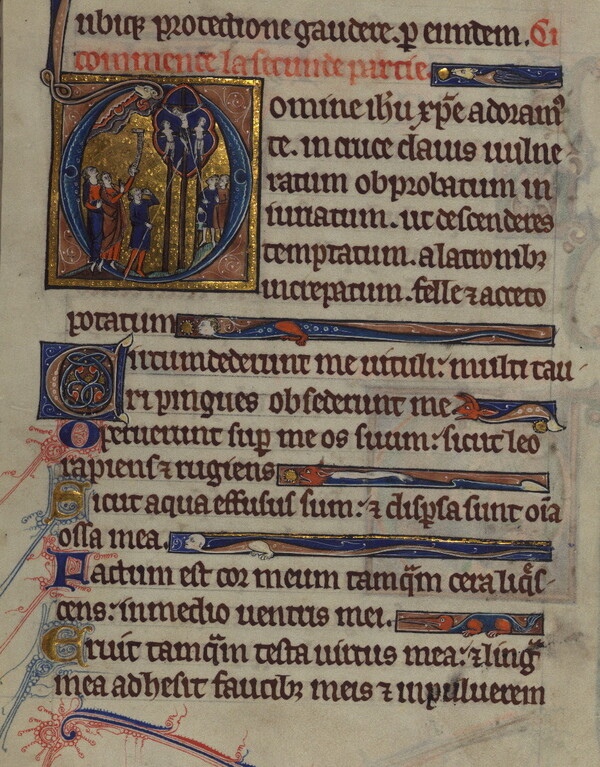 ubiqȝ protectione gaudere. p̱ eundem. Ci
commence la seconde partie.
Domine ihū xp̄e adoram᷒
te. in cruce clauis uulne
ratum obprobatum in
iuriatum. ut descenderes
temptatum. a latronibȝ
increpatum. felle ⁊ aceto
potatum
Circumdederunt me uituli: multi tau
ri pingues obsederunt me
Operuerunt sup̱ me os suum: sicut leo
rapiens ⁊ rugiens
Sicut aqua effusus sum: ⁊ disp̱sa sunt oīa
ossa mea.
Factum est cor meum tamq̄m cera liq̄s
cens: in medio uentris mei.
Eruit tamq̄m testa uirtus mea: ⁊ ling̃
mea adhesit faucibȝ meis ⁊ in puluerem